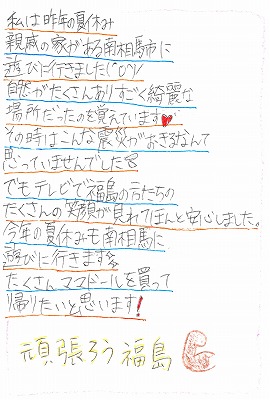 私は昨年の夏休み
親戚の家がある南相馬市に
遊びに行きました(^O^)/
自然がたくさんありすごく綺麗な
場所だったのを覚えています♥
その時はこんな震災がおきるなんて
思っていませんでした
でもテレビで福島の方たちの
たくさんの笑顔が見れてほんと安心しました。
今年の夏休みも南相馬に
遊びに行きます
たくさんママドールを買って
帰りたいと思います!
頑張ろう福島